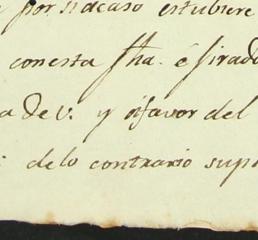 por si acaso estubiere
conesta fha. é
a de v. y afavor del
delo contrario sup